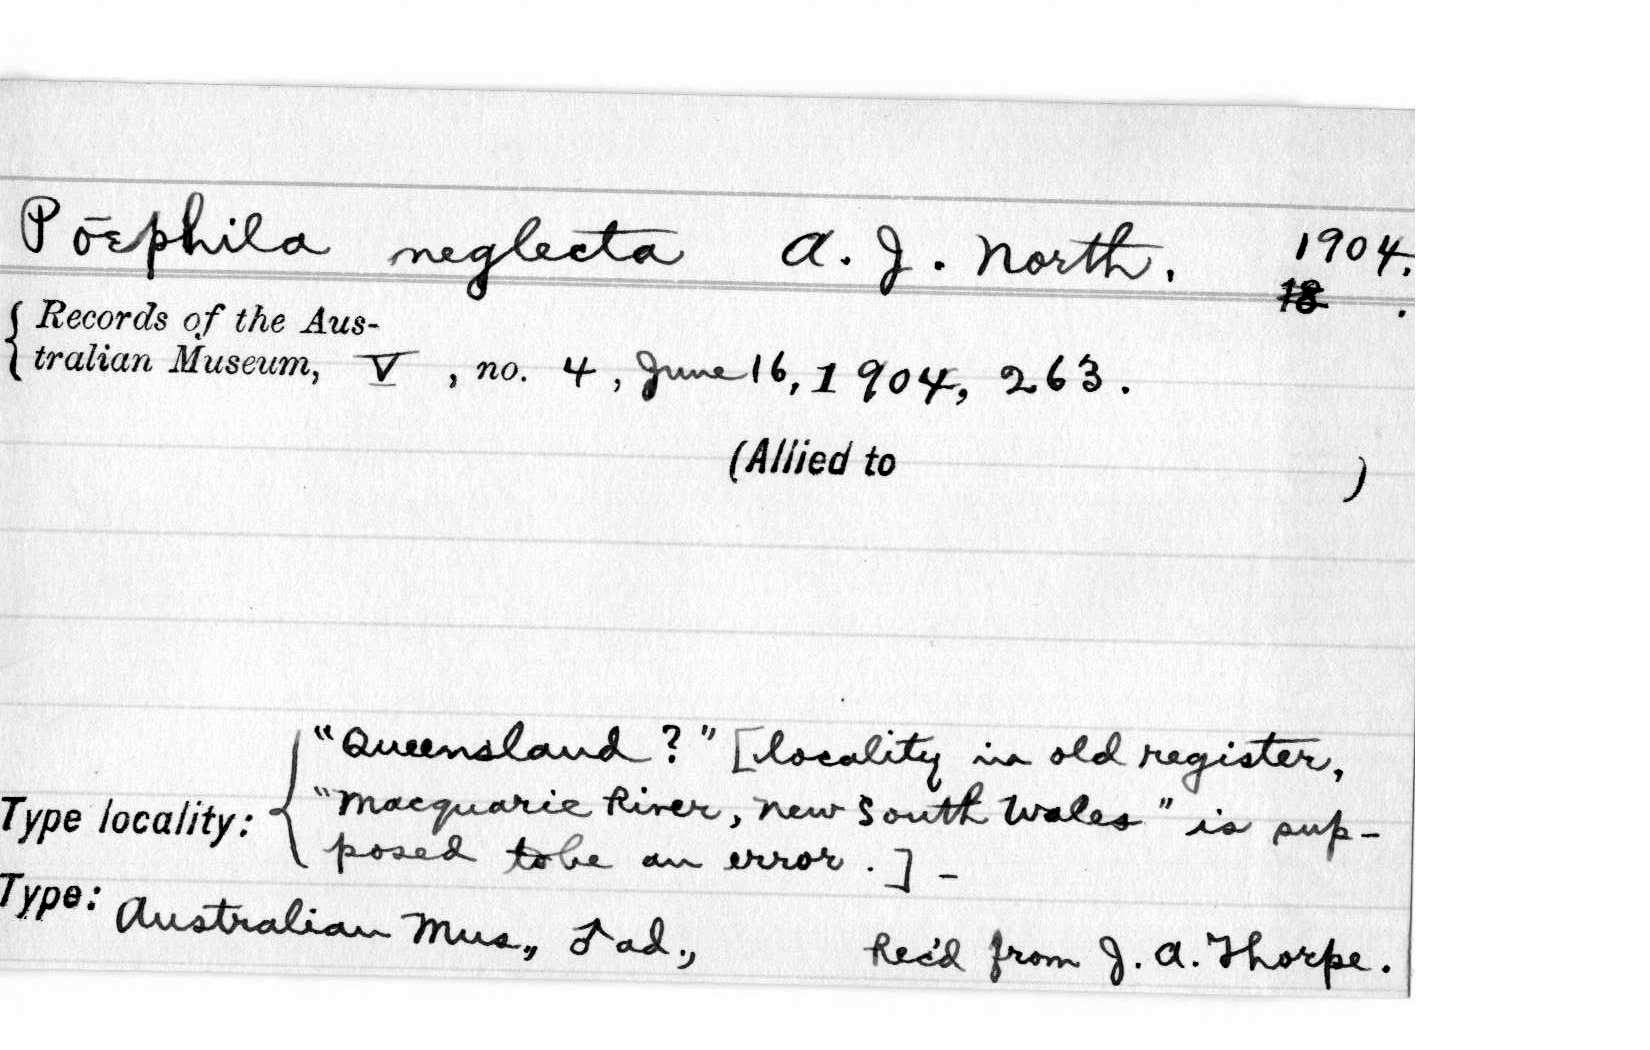 Pōephila neglecta A. J. North, 1904.
18 .
Records of the Aus-
tralian Museum, V, no. 4, June 16, 1904, 263.
(Allied to )
"Queensland?" [locality in old register,
Type locality: "Macquarie River, New South Wales" is sup-
posed to be an error.] -
Type: Australian Mus., ♂ ad., Rec'd from J. A. Thorpe.